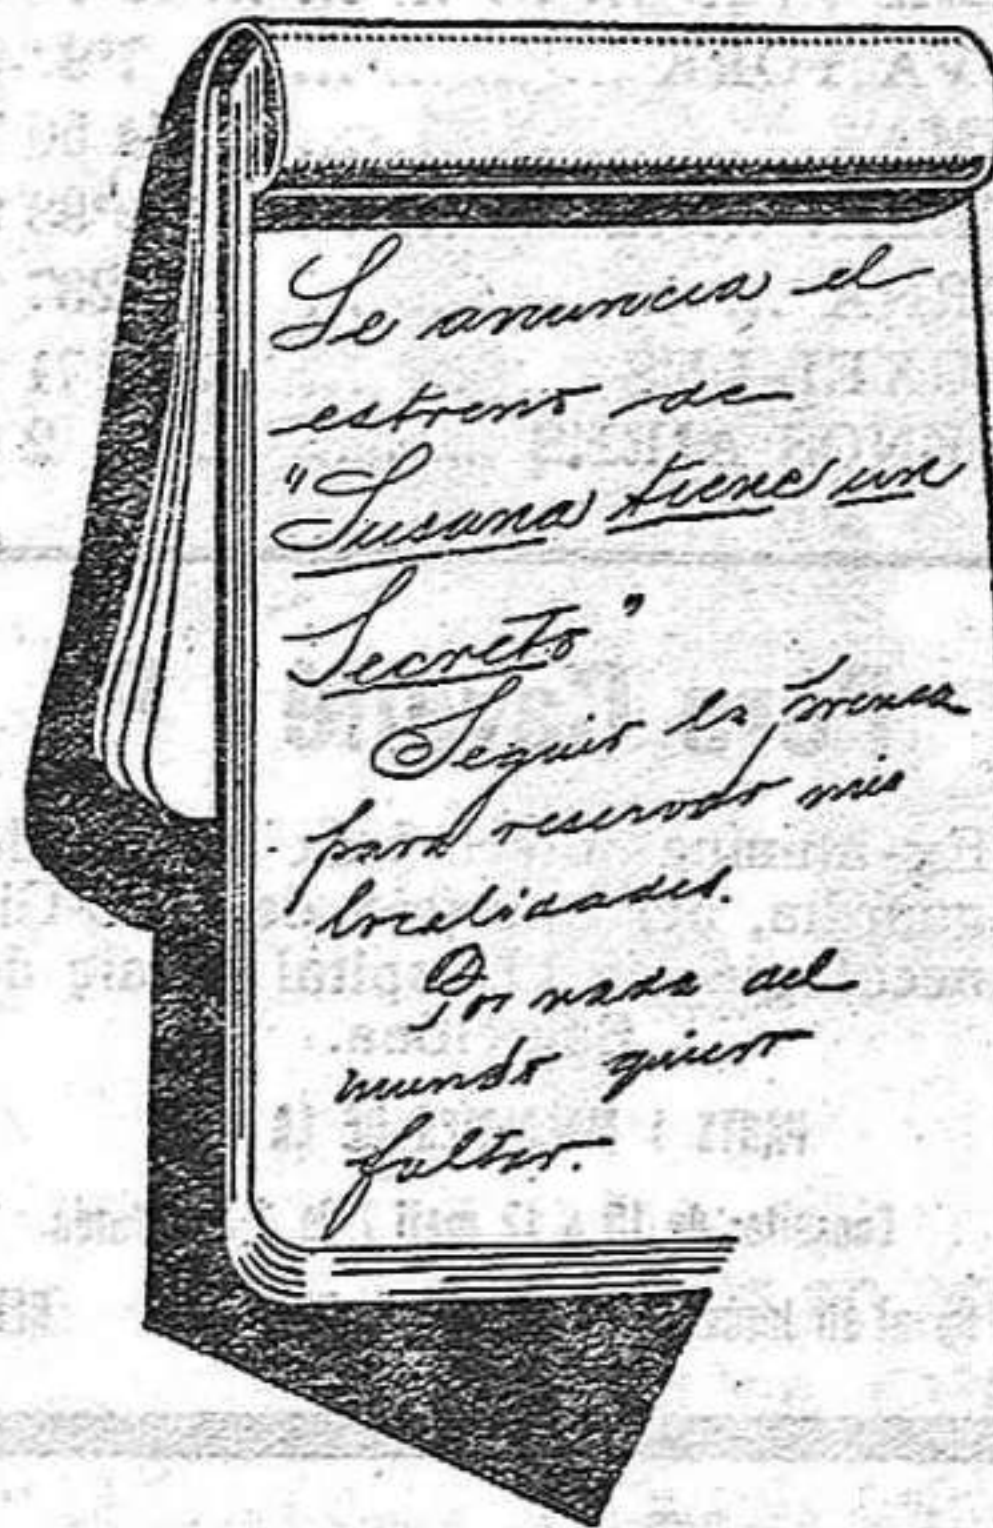 Se anuncia el
estreno de
"Susana tiene un
Secreto"
Seguir la prensa
para reservar mis
localidades.
Por nada del
mundo quiero
faltar.